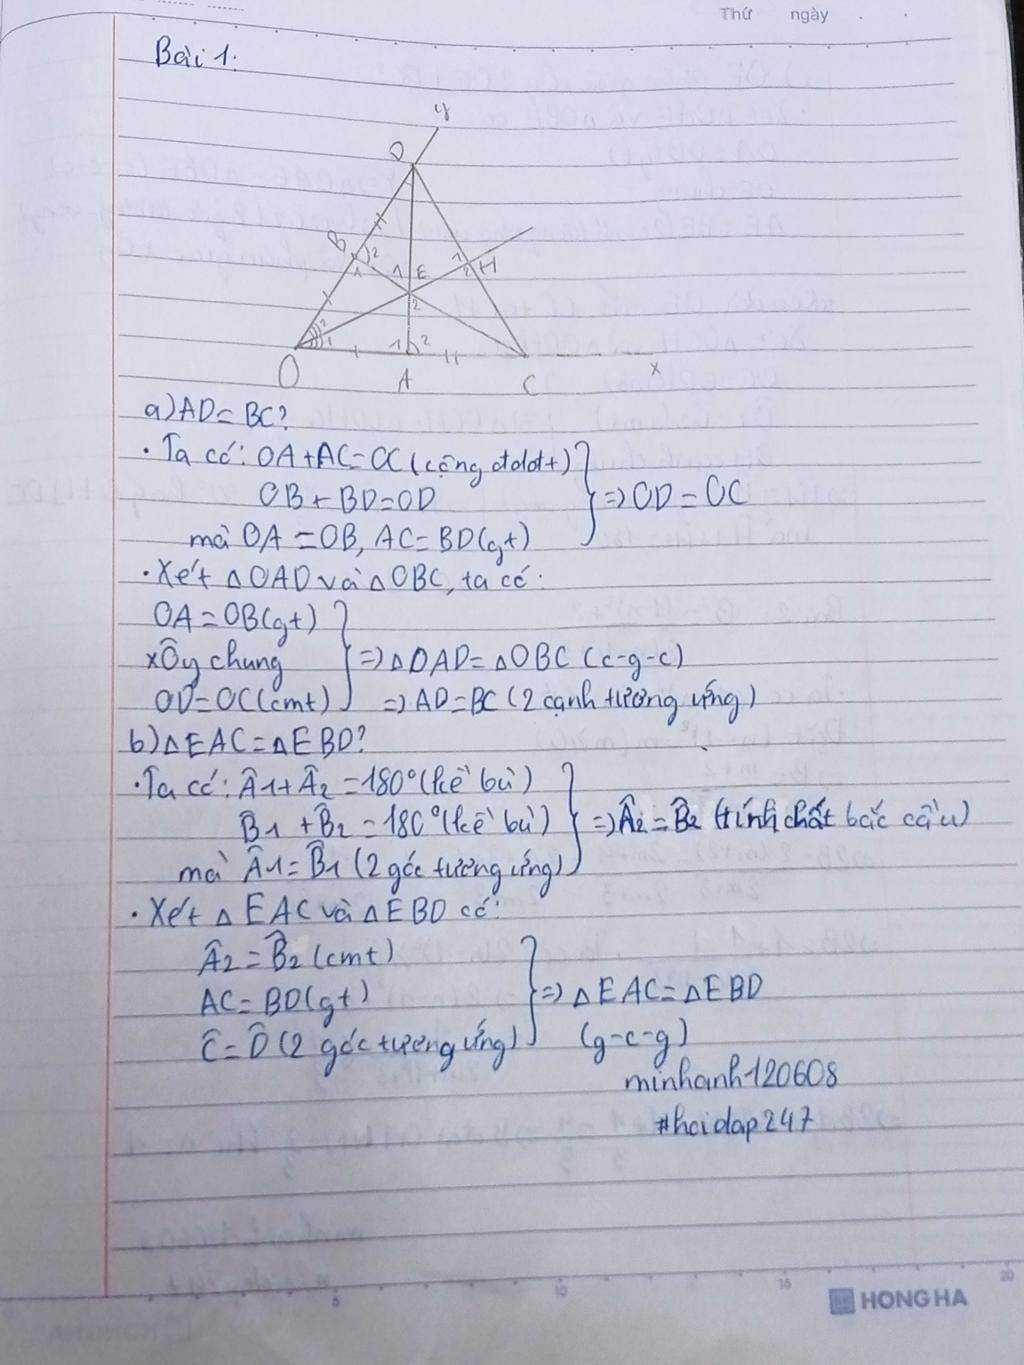 Thứ ngày . .
Bài 1.
y
D
B 2
1 1 E 1 2 H
2
2 1 1 2
O A C x
a) AD = BC?
· Ta có: OA + AC = OC (cộng đtdđt+)
OB + BD = OD
mà OA = OB, AC = BD (gt)
=> OD = OC
· Xét △OAD và △OBC, ta có:
OA = OB (gt)
xÔy chung
OD = OC (cmt)
=> △OAD = △OBC (c-g-c)
=> AD = BC (2 cạnh tương ứng)
b) △EAC = △EBD?
· Ta có: Â1 + Â2 = 180° (kề bù)
B̂1 + B̂2 = 180° (kề bù)
mà Â1 = B̂1 (2 góc tương ứng)
=> Â2 = B̂2 (tính chất bắc cầu)
· Xét △EAC và △EBD có:
Â2 = B̂2 (cmt)
AC = BD (gt)
Ĉ = D̂ (2 góc tương ứng)
=> △EAC = △EBD
(g-c-g)
minhanh120608
#hoidap247
5 10 15 20
HONG HA